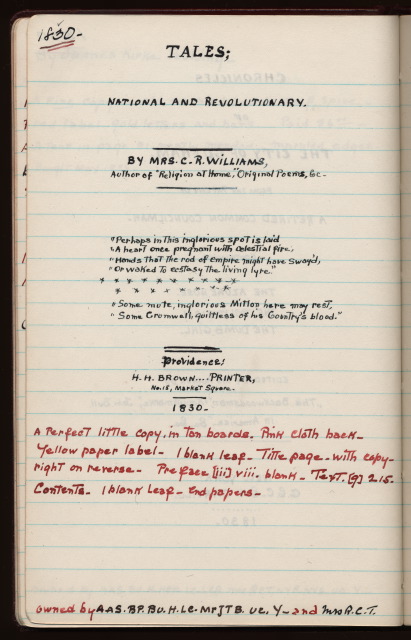 1830-
TALES;
NATIONAL AND REVOLUTIONARY.
BY MRS. C. R. WILLIAMS,
Author of "Religion at Home," Original Poems, &c-
"Perhaps in this inglorious spot is laid
"A heart once pregnant with celestial fire,
"Hands that the rod of Empire might have Sway'd,
"Or waked to ecstasy the living lyre."
* * * * * * * * * *
* * * * * * * *
"Some mute, inglorious Milton here may rest,
"Some Cromwell, guiltless of his Country's blood."
Providence:
H. H. BROWN.... PRINTER,
No. 15, Market Square.
1830-
A Perfect little copy, in Tan boards. Pink Cloth back-
Yellow paper label- 1 blank leaf- Title page- with copy-
right on reverse- Preface [iii] viii. blank- Text. [9] 215-
Contents- 1 blank Leaf- End papers-
owned by AAS. BP. BU. H. LC- MFJTB. UC, Y- and Mrs R.C.T.